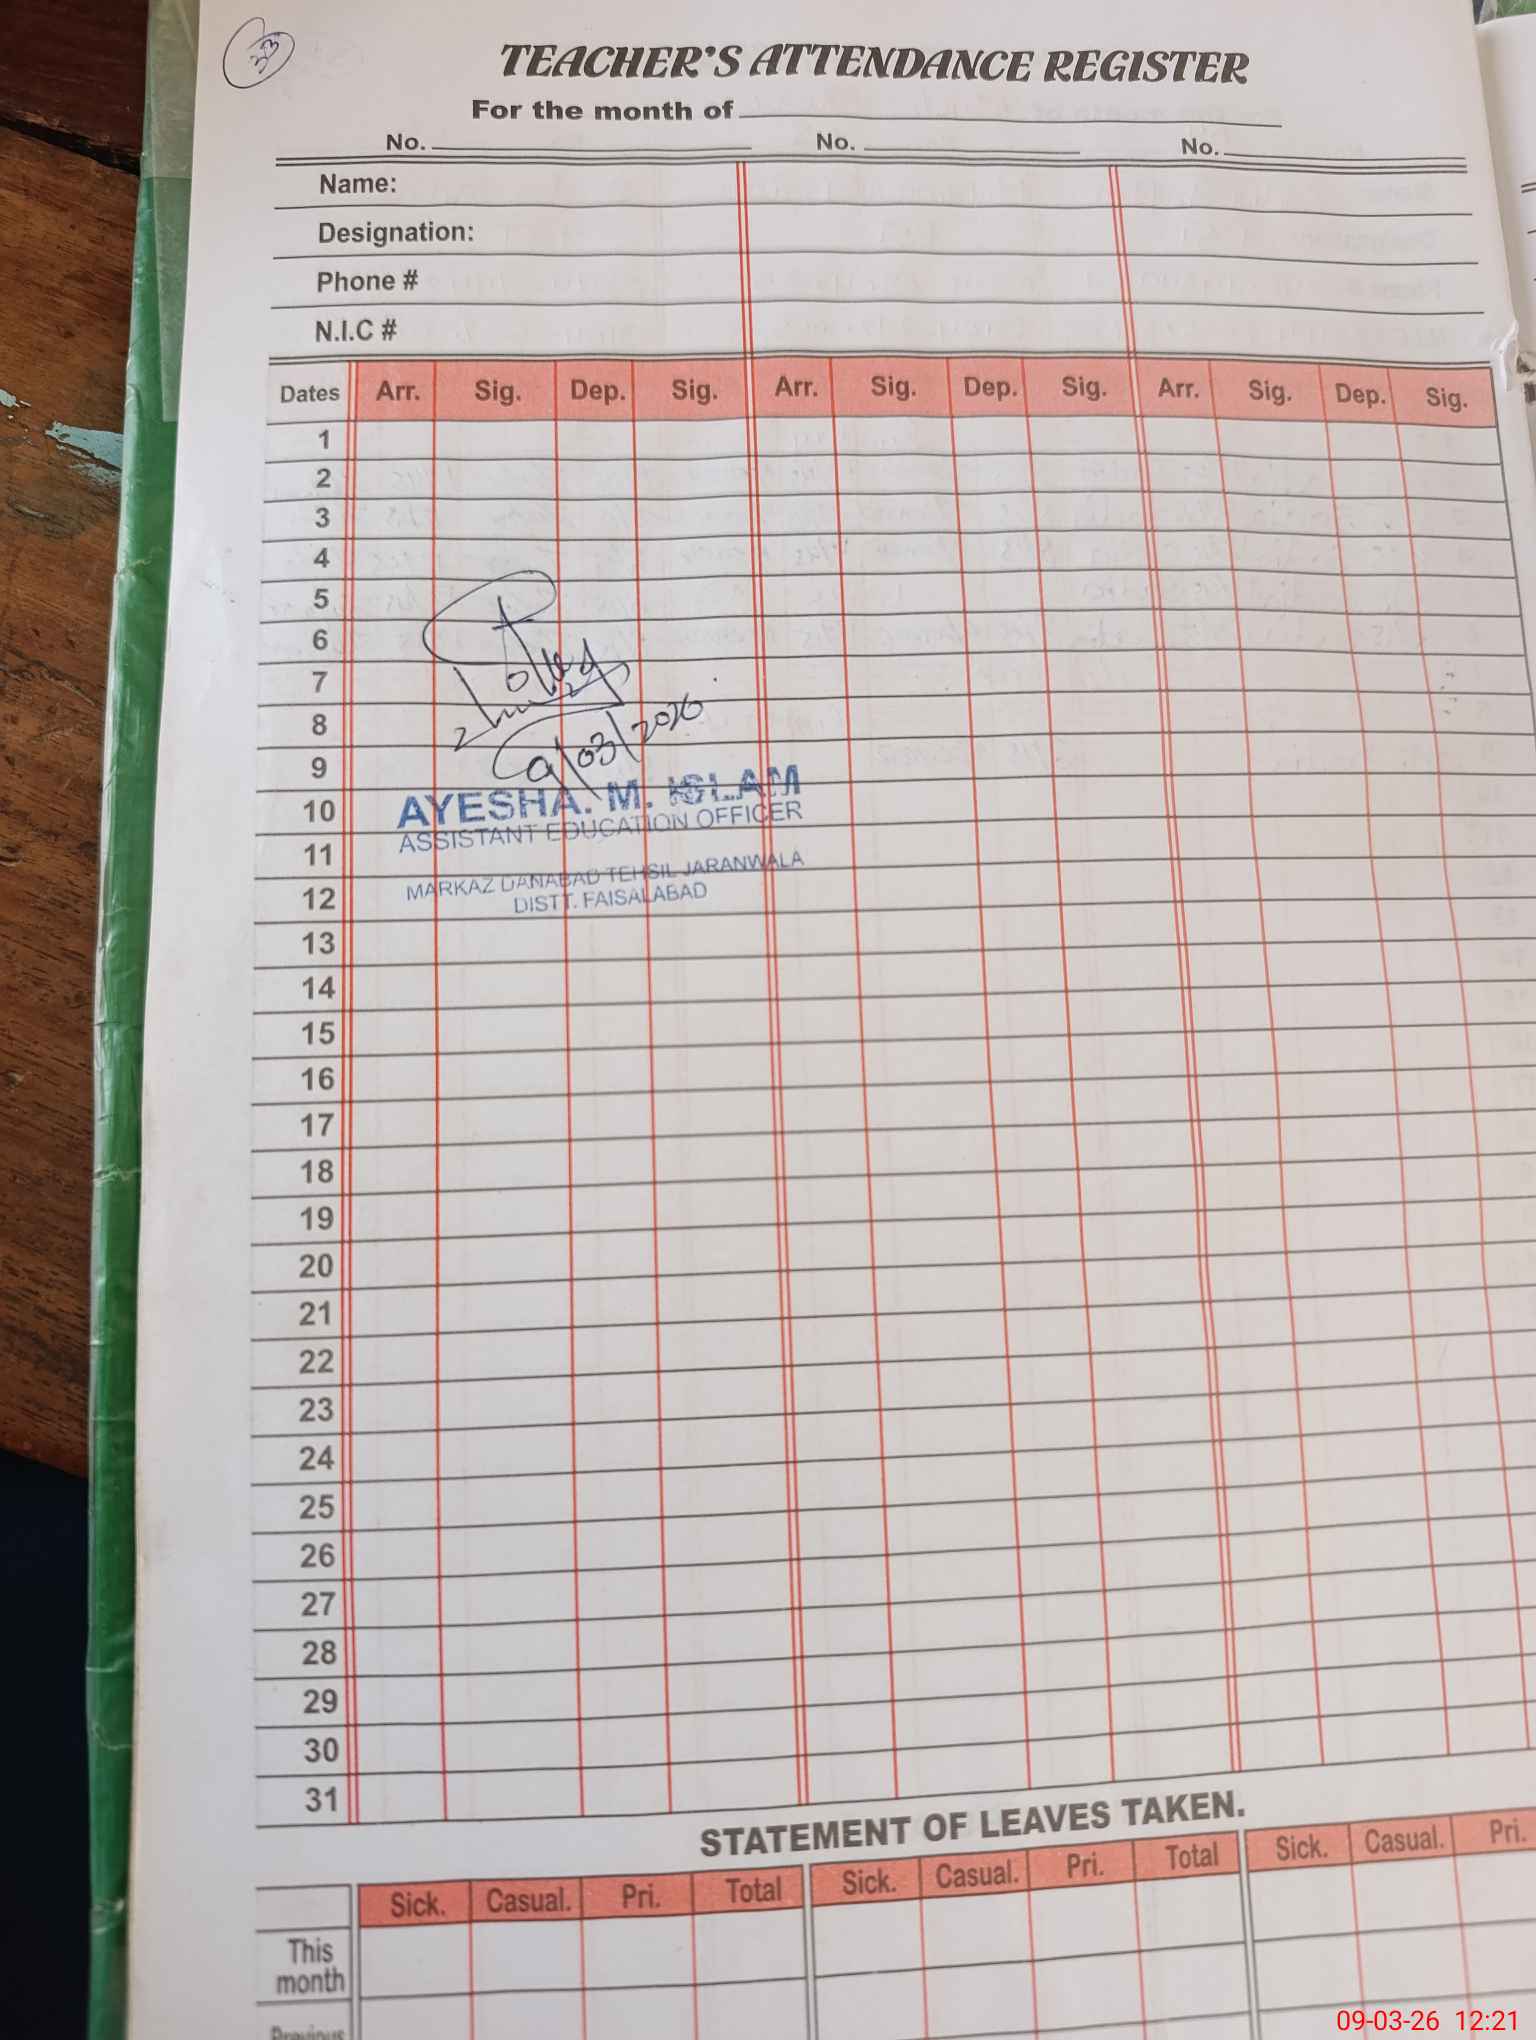 33
TEACHER'S ATTENDANCE REGISTER
For the month of
No. No. No.
Name:
Designation:
Phone #
N.I.C #
Dates Arr. Sig. Dep. Sig. Arr. Sig. Dep. Sig. Arr. Sig. Dep. Sig.
1
2
3
4
5
6
7
8
9
09/03/2026
10
AYESHA. M. ISLAM
ASSISTANT EDUCATION OFFICER
11
MARKAZ DANABAD TEHSIL JARANWALA
12
DISTT. FAISALABAD
13
14
15
16
17
18
19
20
21
22
23
24
25
26
27
28
29
30
31
STATEMENT OF LEAVES TAKEN.
Sick. Casual. Pri. Total Sick. Casual. Pri. Total Sick. Casual. Pri.
This
month
Previous
09-03-26 12:21